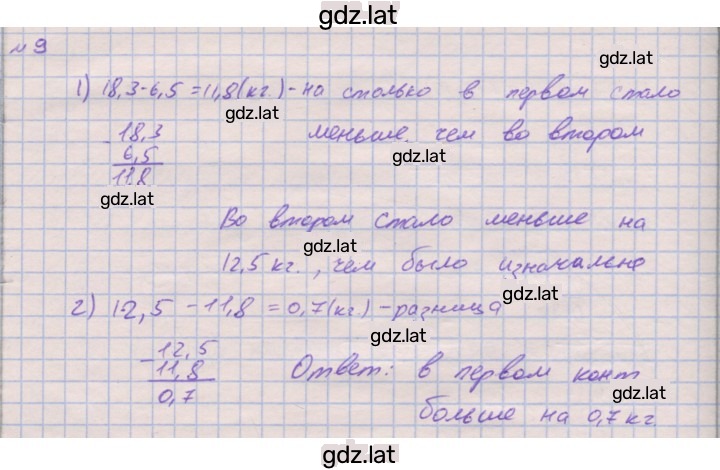 gdz.lat
№9
gdz.lat
1) 18,3-6,5=11,8(кг.)-на столько в первом стало
gdz.lat
- 18,3
меньше, чем во втором
6,5
gdz.lat
11,8
gdz.lat
Во втором стало меньше на
gdz.lat
12,5 кг., чем было изначально
gdz.lat
2) 12,5 - 11,8 = 0,7(кг.)-разница
gdz.lat
- 12,5
11,8
Ответ: в первом конт
gdz.lat
0,7
больше на 0,7 кг
gdz.lat